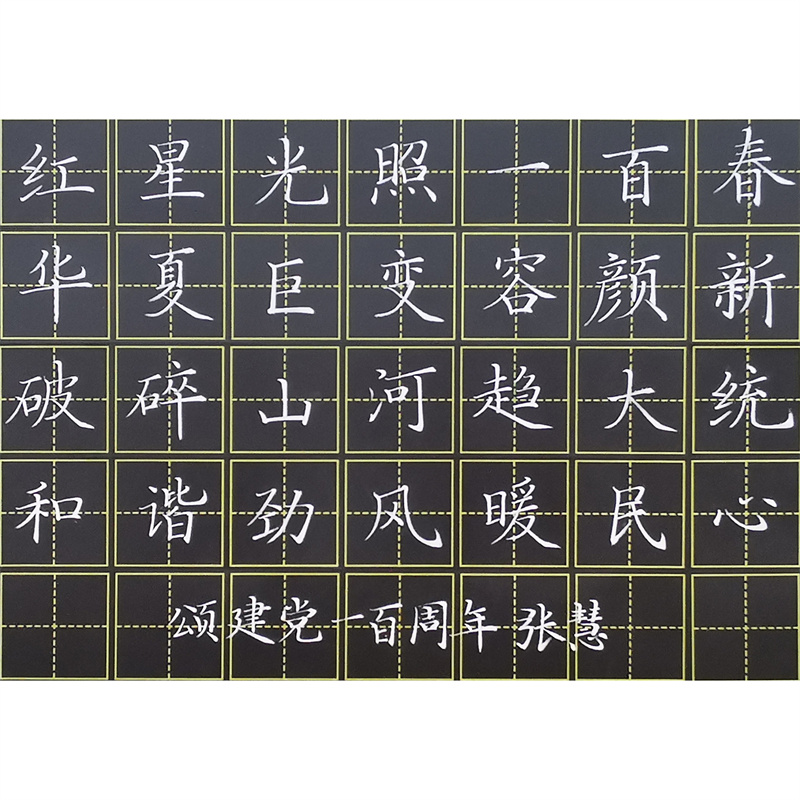 红星光照一百春
华夏巨变容颜新
破碎山河趋大统
和谐劲风暖民心
颂建党一百周年 张慧